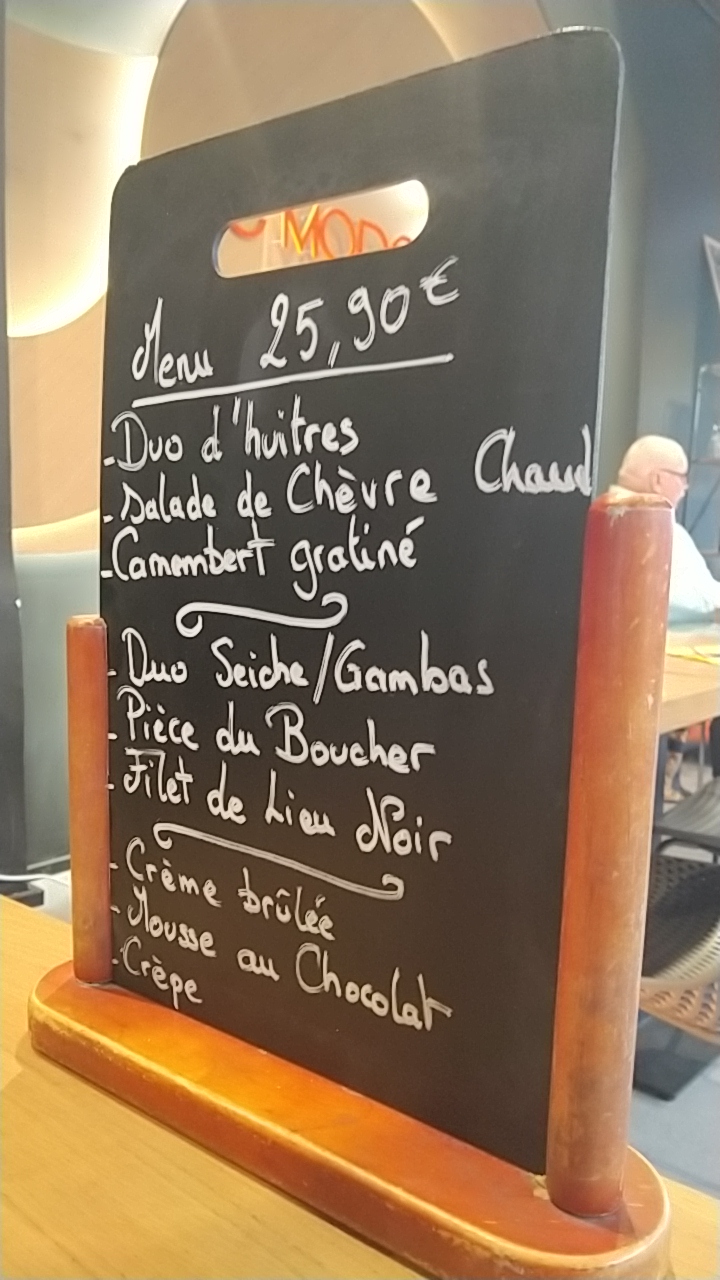 MOD
Menu 25,90€
-Duo d'huîtres
-Salade de Chèvre Chaud
-Camembert gratiné
- Duo Seiche/Gambas
- Pièce du Boucher
- Filet de Lieu Noir
- Crème brûlée
- Mousse au Chocolat
- Crêpe